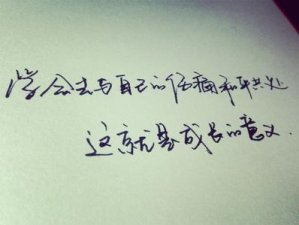 学会去与自己的伤痛和平共处
这就是成长的意义.